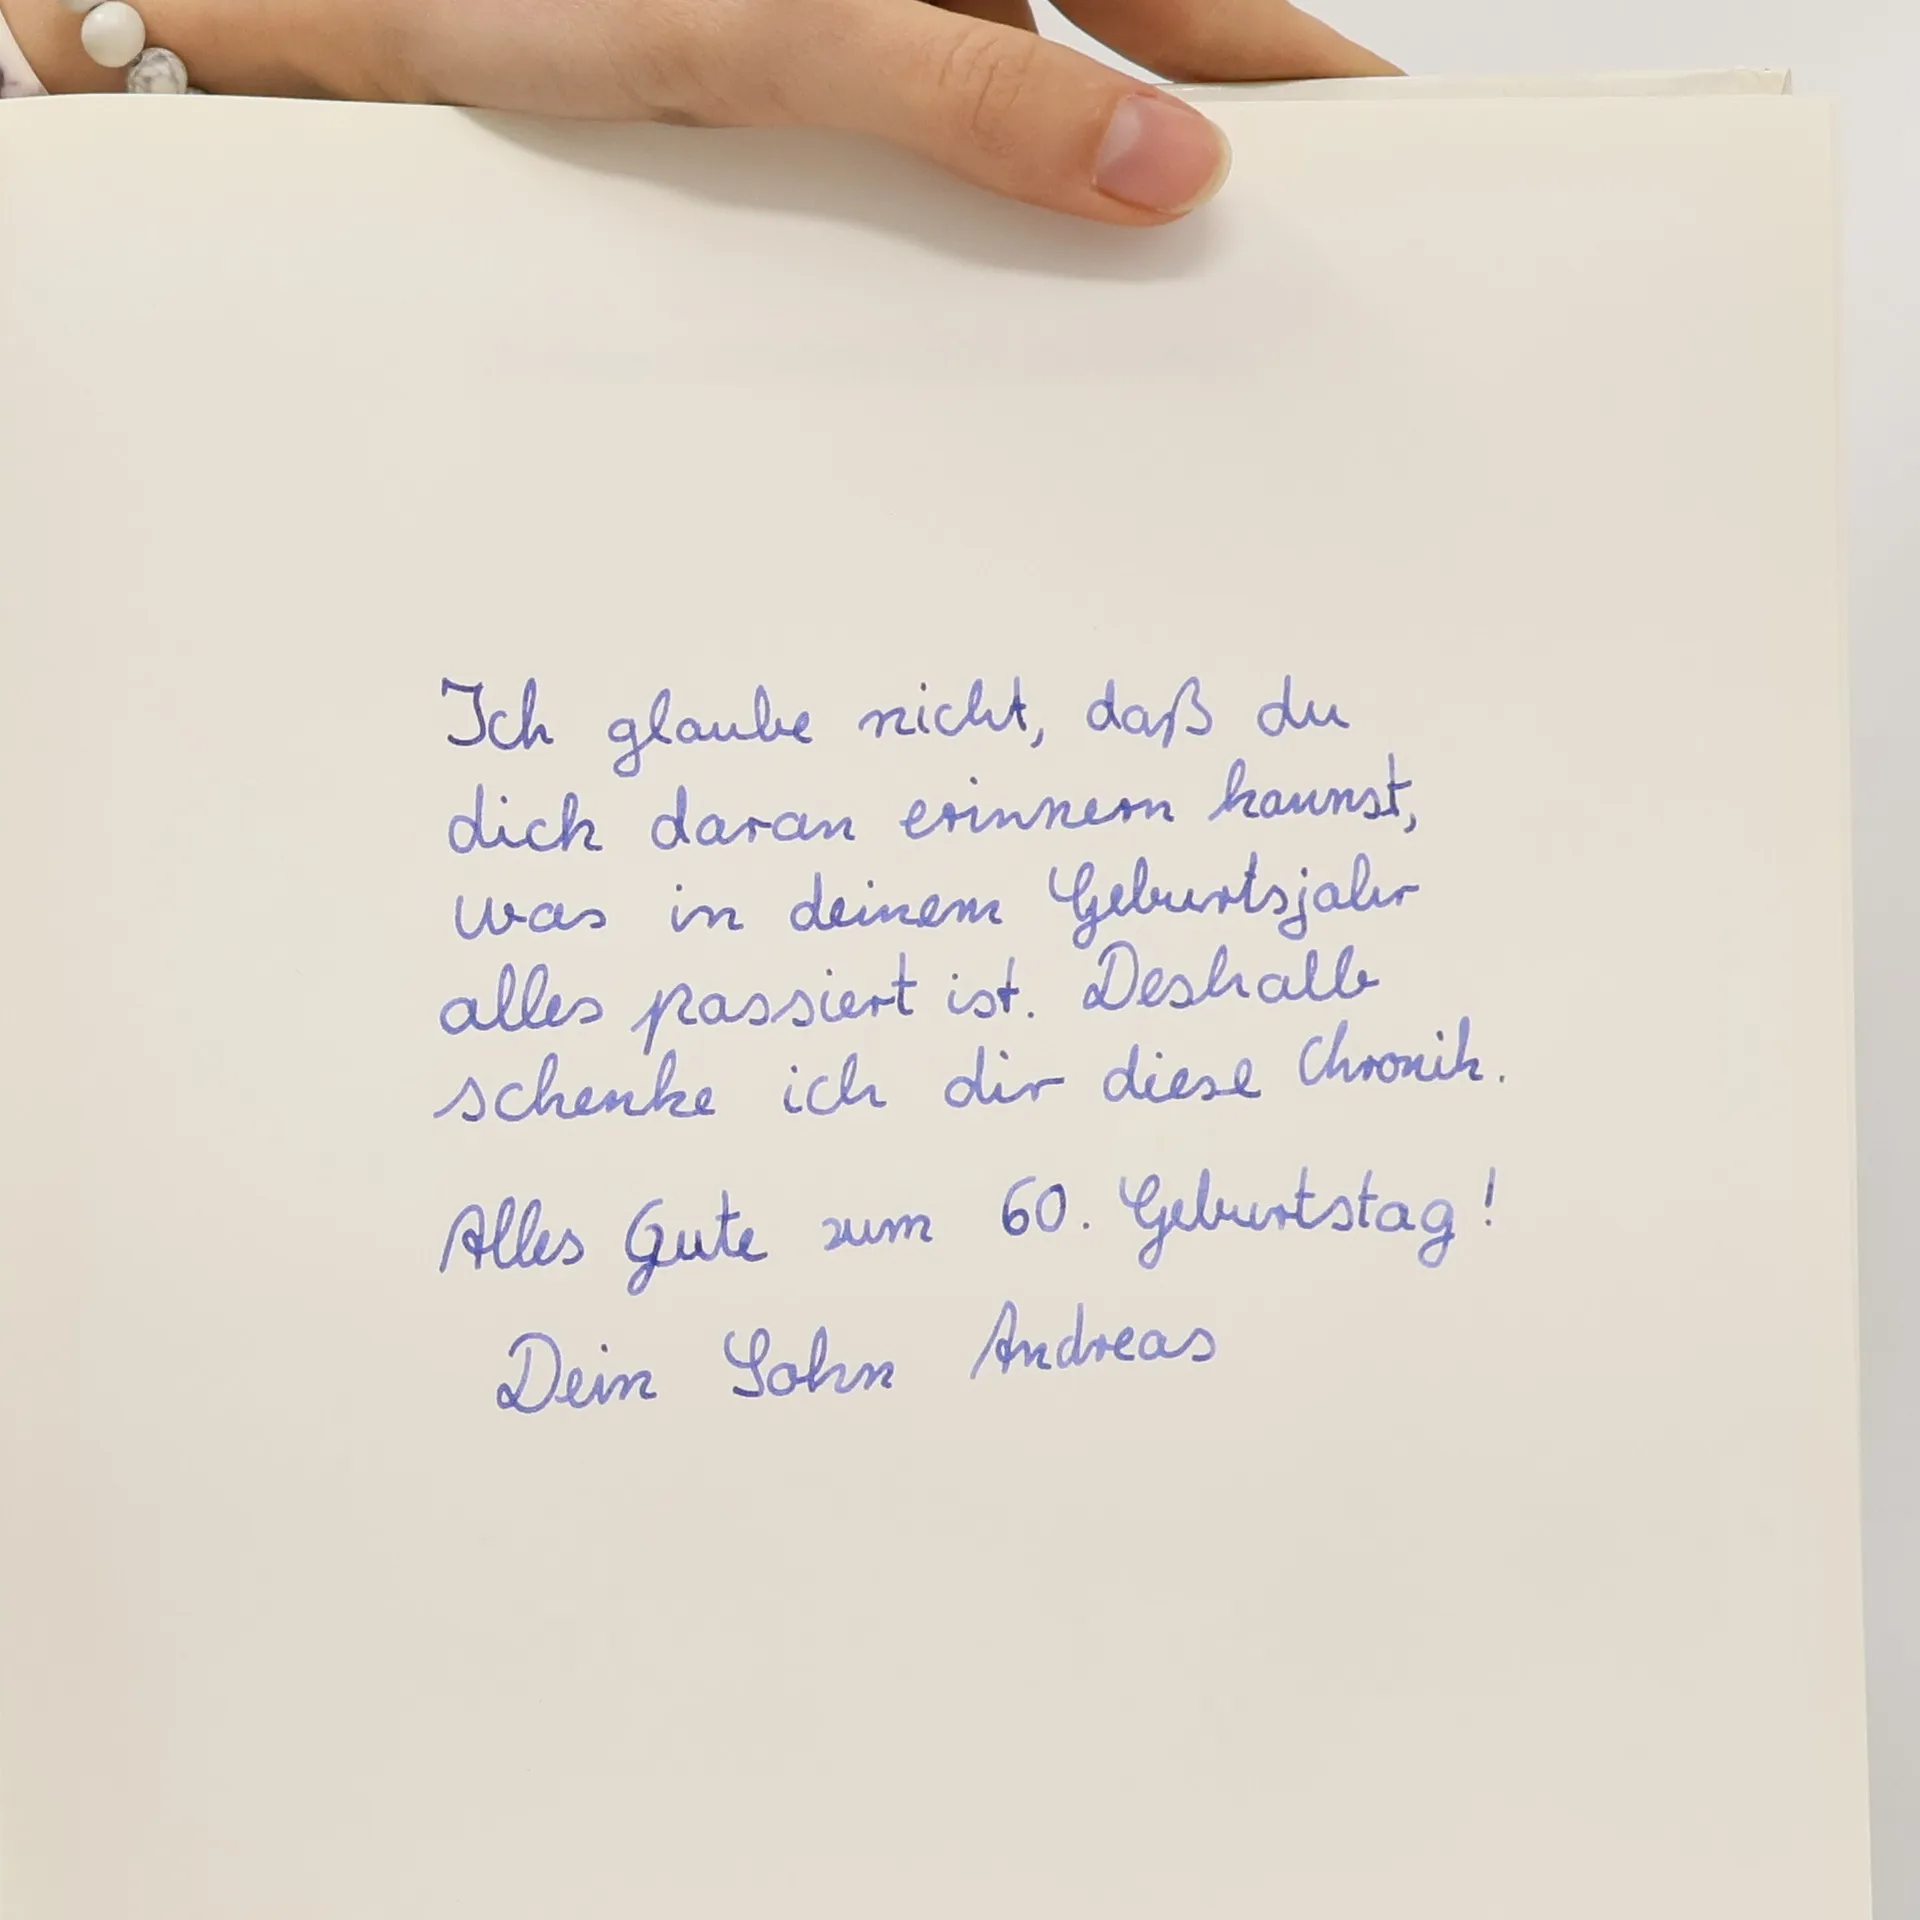 Ich glaube nicht, daß du
dich daran erinnern kannst,
was in deinem Geburtsjahr
alles passiert ist. Deshalb
schenke ich dir diese Chronik.
Alles Gute zum 60. Geburtstag!
Dein Sohn Andreas